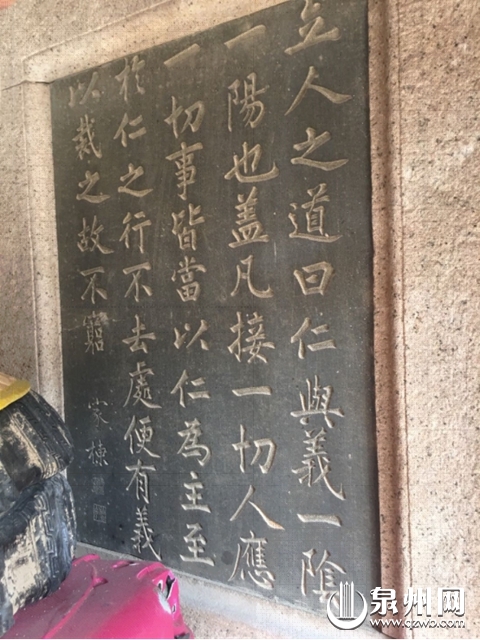 立人之道曰仁與義一陰
一陽也盖凡接一切人應
一切事皆當以仁為主至
於仁之行不去處便有義
以裁之故不窮
家棟
泉州网
www.qzwb.com